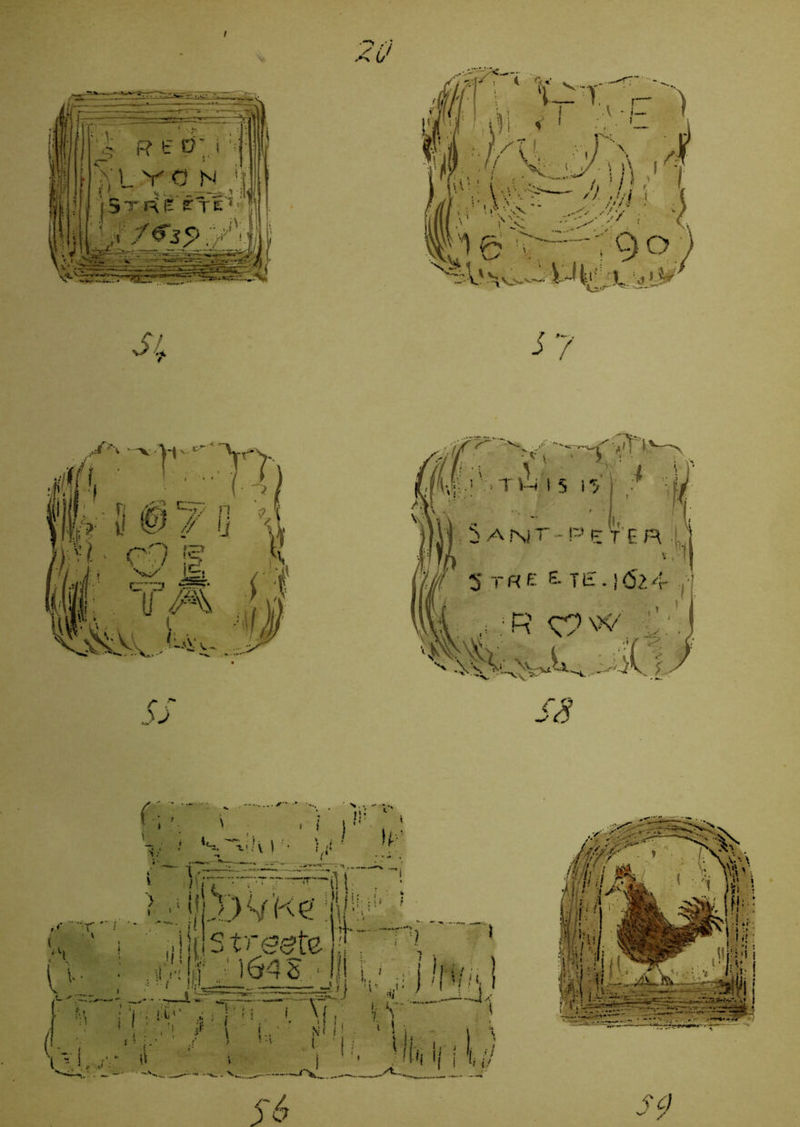 20
RED
LYON
STREETE
1639
54
T E
16 90
57
1670
E
TA
55
THIS IS
SANT-PETER
STREETE.1624
R W
58
DVKe
Streete
1648
56
59